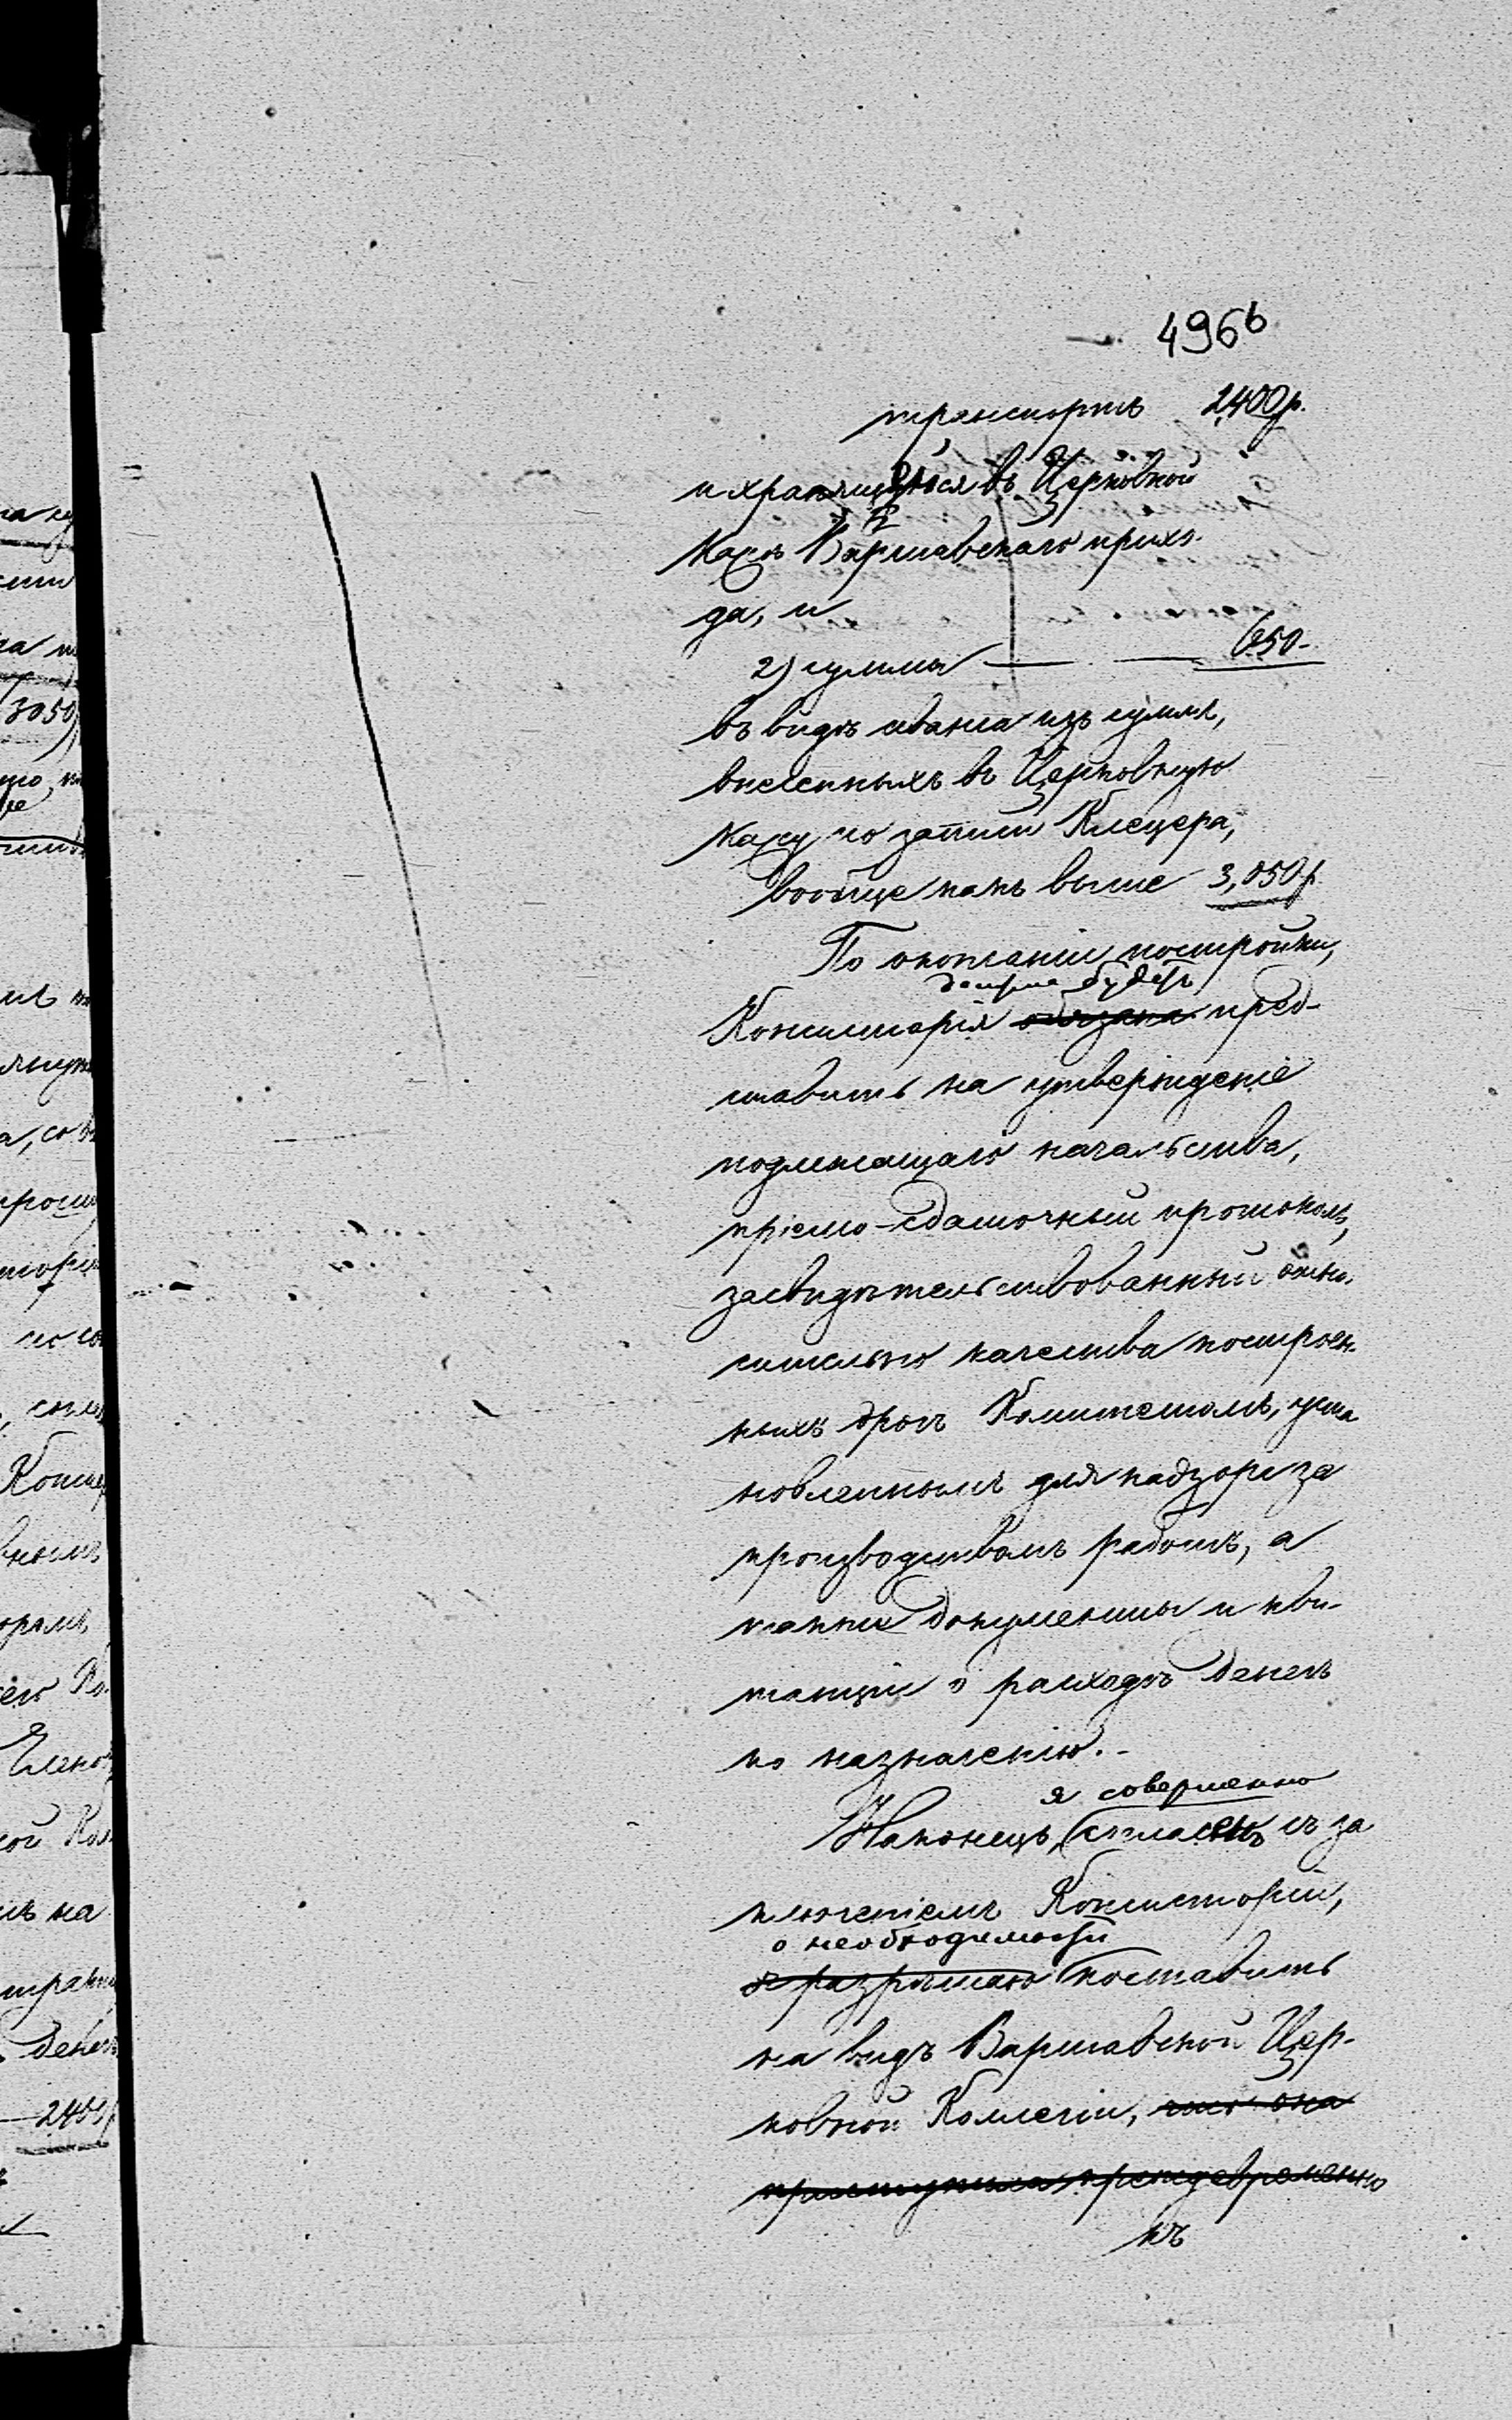 4966
транспортъ 2400 р.
и хранящуюся въ Церковной
кассѣ Варшавскаго прихо-
да, и
2) суммы — — 650-
въ видѣ аванса изъ суммъ,
внесенныхъ въ Церковную
кассу по записи Клецера,
вообще какъ выше 3,050 р.
По окончаніи постройки,
должна будетъ
Консисторія обязана пред-
ставить на утвержденіе
подлежащаго начальства,
пріемо-сдаточный протоколъ,
засвидѣтельствованный отно-
сительно качества построен-
ныхъ Комитетомъ, уста
новленнымъ для надзора за
производствомъ работъ, а
также документы и кви-
танціи о расходѣ денегъ
по назначенію.-
я совершенно
Наконецъ, согласенъ съ за
ключеніемъ Консисторіи,
о необходимости
и разрѣшаю поставить
на видъ Варшавской Цер-
ковной Коллегіи, что она
приступила преждевременно
къ